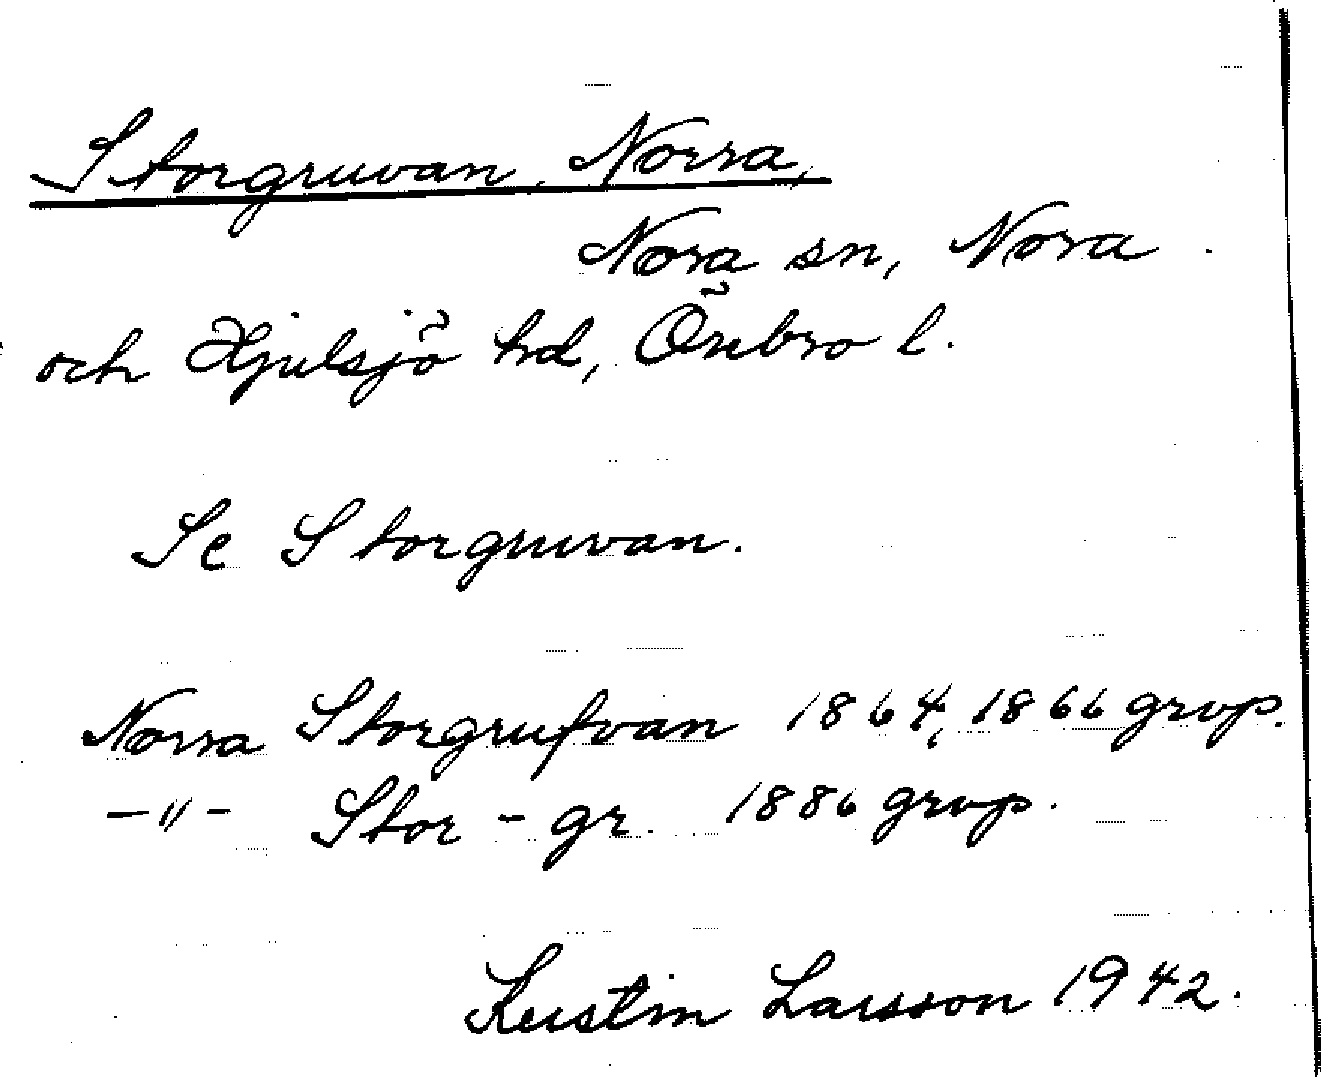 Storgruvan, Norra,
Nora sn, Nora
och Hjulsjö hd, Örebro l.
Se Storgruvan.
Norra Storgrufvan 1864, 1866 grvp.
-"- Stor-gr. 1886 grvp.
Kerstin Larsson 1942.